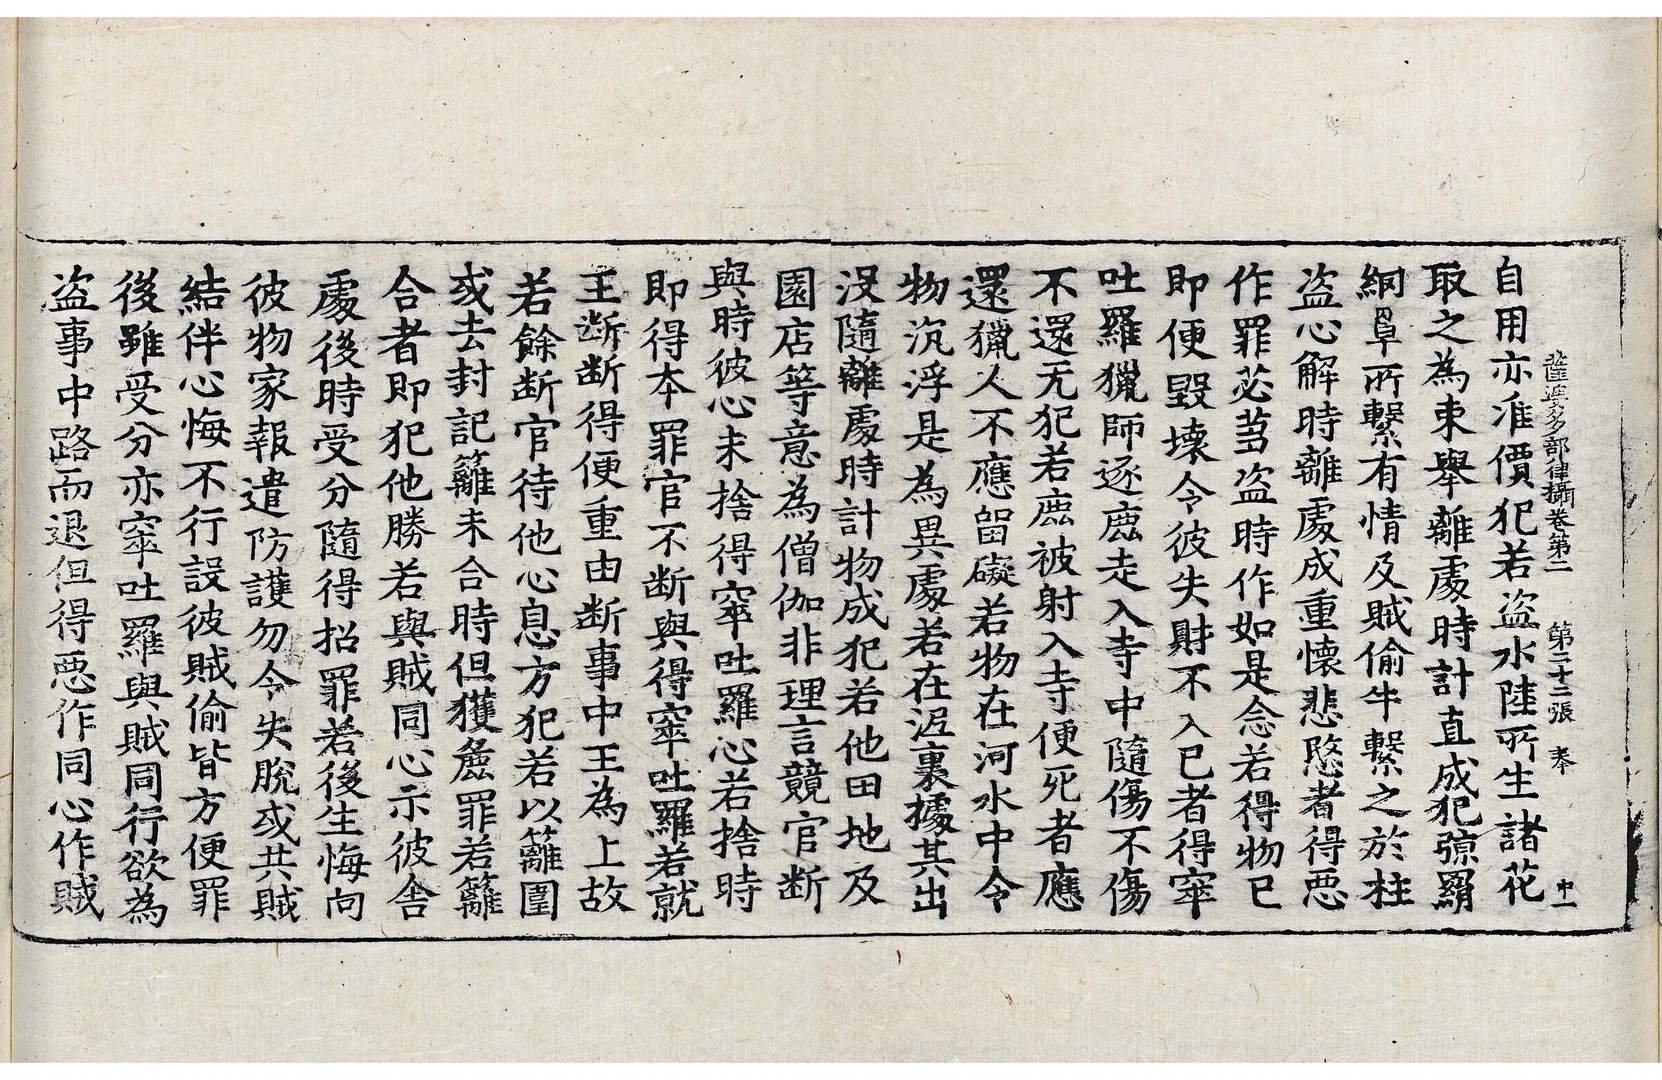 薩婆多部律攝卷第二 第二十二張 本 廾一
自用亦准價犯若盗水陸所生諸花
取之為束舉離處時計直成犯弶羂
網罩所繫有情及賊偷牛繫之於柱
盗心解時離處成重懷悲愍者得惡
作罪苾蒭盗時作如是念若得物已
即便毀壞令彼失財不入已者得窣
吐羅獵師逐鹿走入寺中隨傷不傷
不還无犯若鹿被射入寺便死者應
還獵人不應留礙若物在河水中令
物沉浮是為異處若在泥裏據其出
没隨離處時計物成犯若他田地及
園店等意為僧伽非理言競官断
與時彼心未捨得窣吐羅心若捨時
即得本罪官不断與得窣吐羅若就
王断断得便重由断事中王為上故
若餘断官待他心息方犯若以籬圍
或去封記籬未合時但獲麁罪若籬
合者即犯他勝若與賊同心示彼舍
處後時受分隨得招罪若後生悔向
彼物家報遣防護勿令失脫或共賊
結伴心悔不行設彼賊偷皆方便罪
後雖受分亦窣吐羅與賊同行欲為
盗事中路而退但得惡作同心作賊